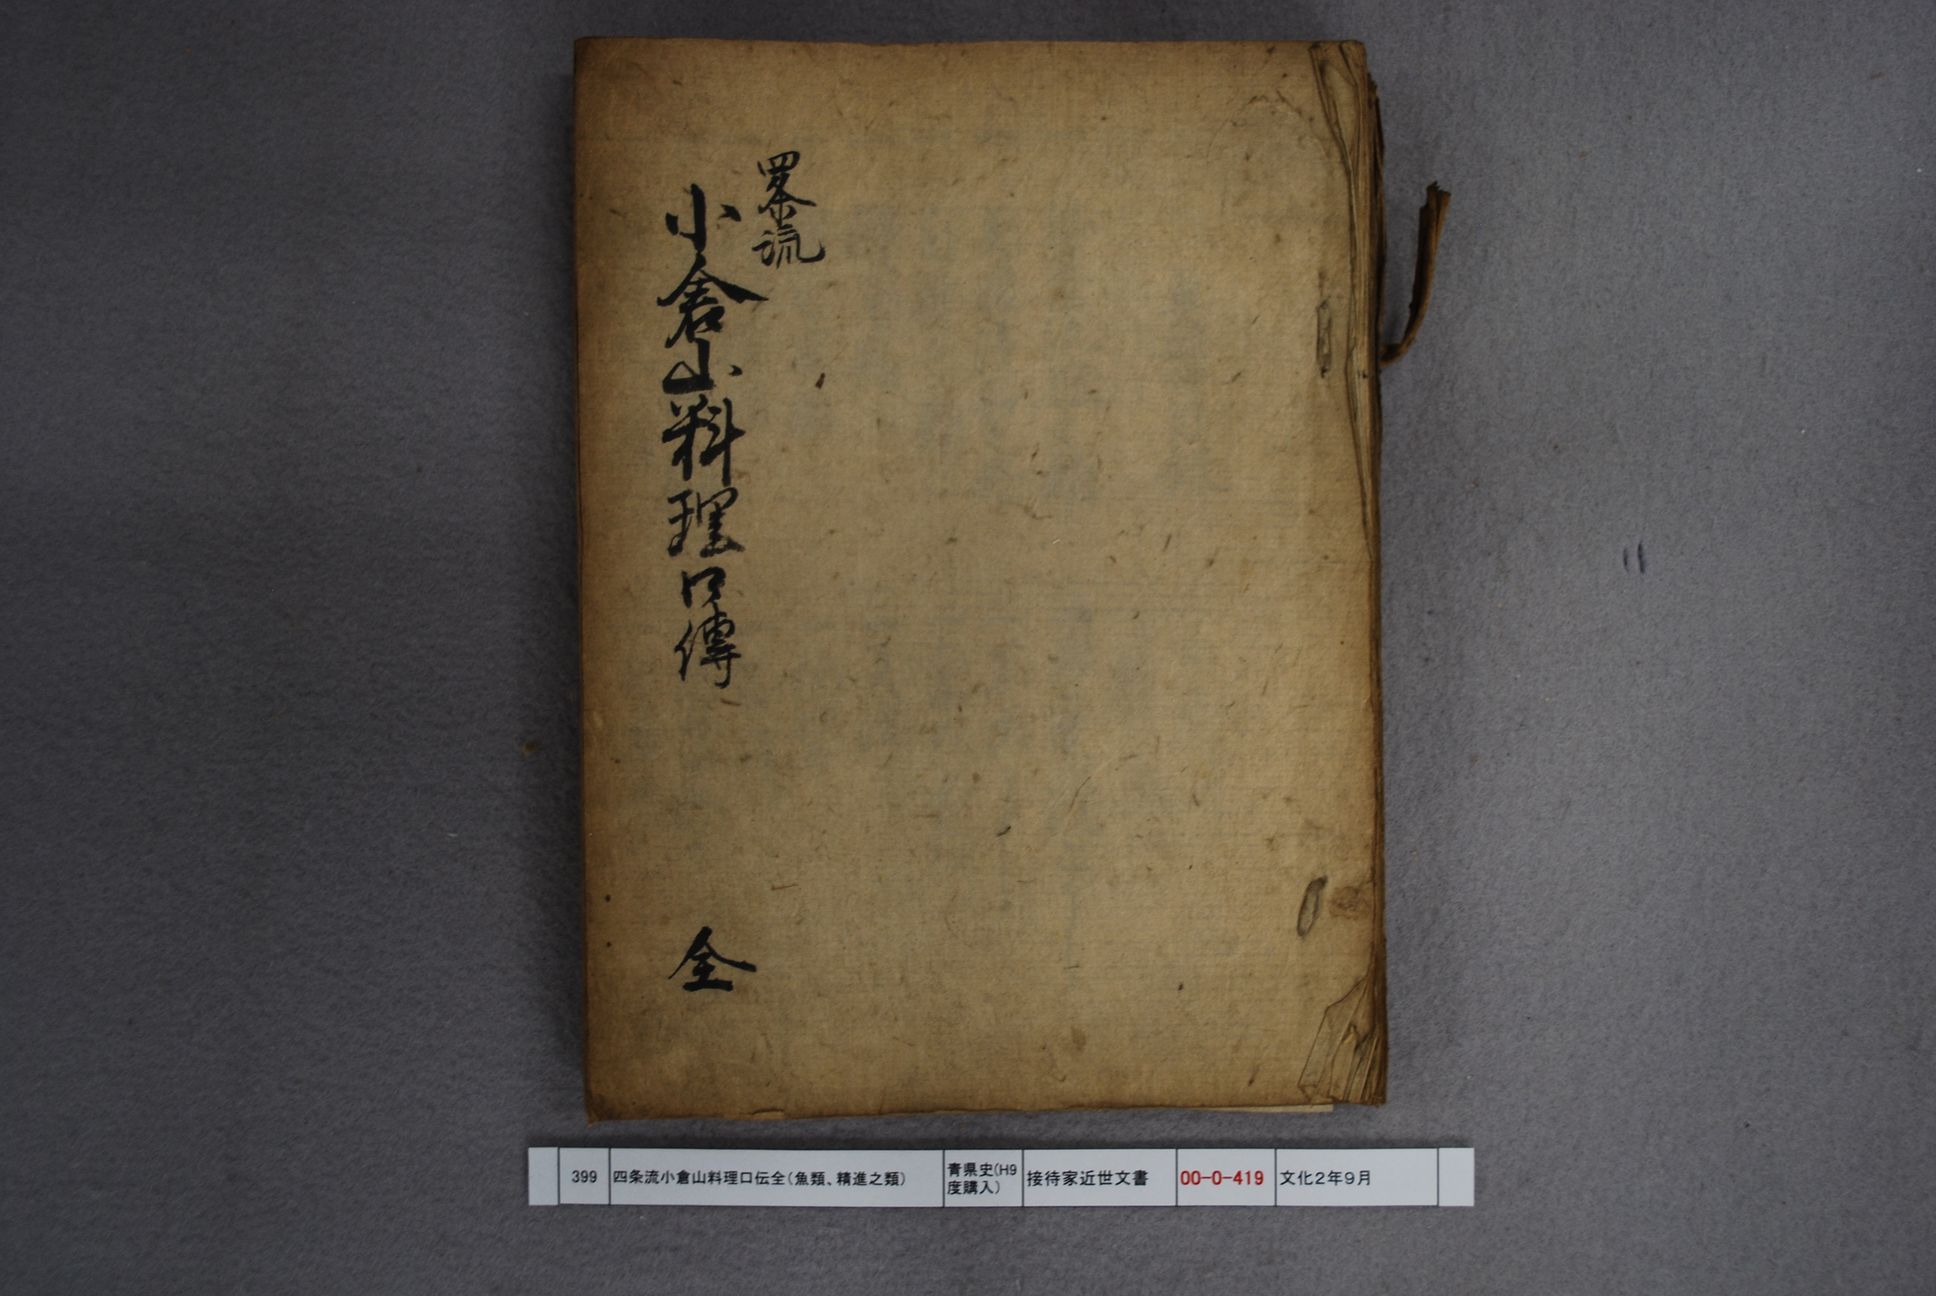 四条流
小倉山料理口傳
全
399
四条流小倉山料理口伝全(魚類、精進之類)
青県史(H9
度購入)
接待家近世文書
00-0-419
文化2年9月